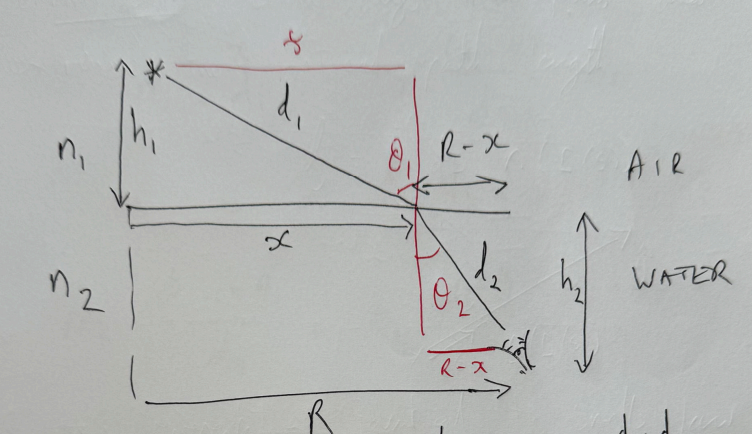 x
d₁
n₁
h₁
θ₁
R-x
AIR
x
n₂
θ₂
d₂
h₂
WATER
R-x
R